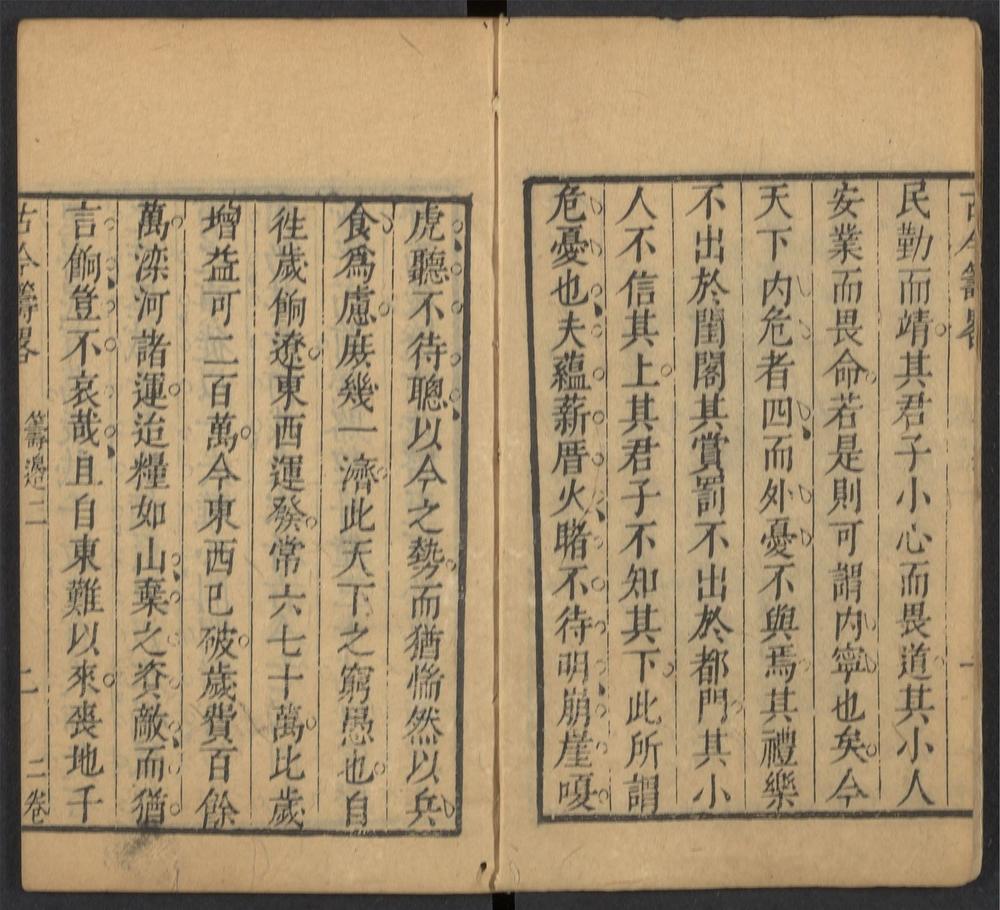 古今籌畧
民勤而靖其君子小心而畏道其小人
安業而畏命若是則可謂内寧也矣今
天下内危者四而外憂不與焉其禮樂
不出於閨閣其賞罰不出於都門其小
人不信其上其君子不知其下此所謂
危憂也夫蘊薪厝火睹不待明崩崖嗄
虎聽不待聰以今之勢而猶惴然以兵
食爲慮庶幾一濟此天下之窮愚也自
徃歲餉遼東西運發常六七十萬比歲
增益可二百萬今東西已破歲費百餘
萬滦河諸運迨糧如山棄之資敵而猶
言餉豈不哀哉且自東難以來喪地千
古今籌畧
籌邊二
二
二卷